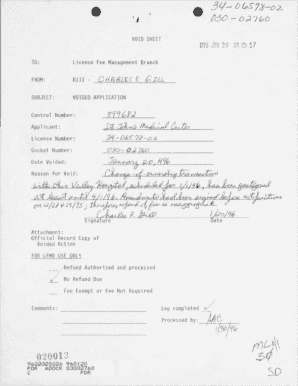 34-06578-02
030-02760
VOID SHEET
TO: License Fee Management Branch
FROM: RIII - CHARLES F. GILL
SUBJECT: VOIDED APPLICATION
Control Number: 399682
Applicant: St Johns Medical Center
License Number: 34-06578-02
Docket Number: 030-02760
Date Voided: January 20, 1996
Reason for Void: Change of ownership transaction
with Ohio Valley Hospital, scheduled for 1/1/96, has been postponed
at least until 4/1/96.
Charles F. Gill 1/20/96
Signature Date
Attachment:
Official Record Copy of
Voided Action
FOR LFMB USE ONLY
Refund Authorized and processed
No Refund Due
Fee Exempt or Fee Not Required
Comments: Log completed
Processed by: AAC
1/30/96
020013
9602020026 960120
PDR ADOCK 03002760
C PDR